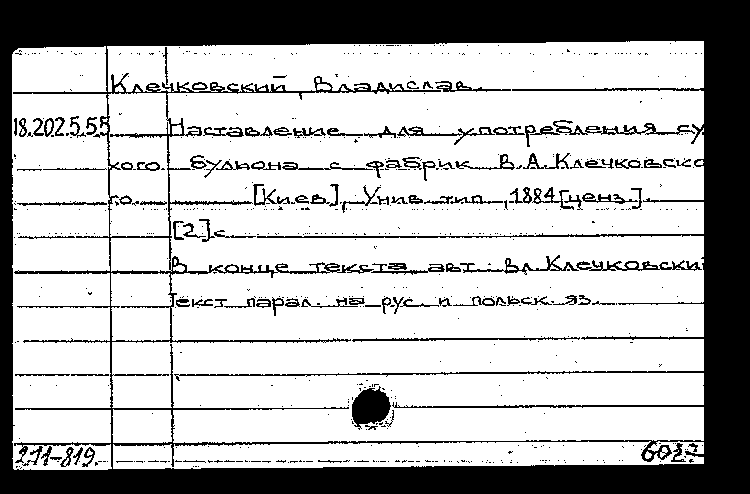 Клечковский, Владислав.
18.202.5.55 Наставление для употребления су
хого бульона с фабрик В.А.Клечковско
го. [Киев], Унив. тип., 1884[ценз.].
[2]с.
В конце текста авт.: Вл.Клечковский
Текст парал. на рус. и польск. яз.
211-819.